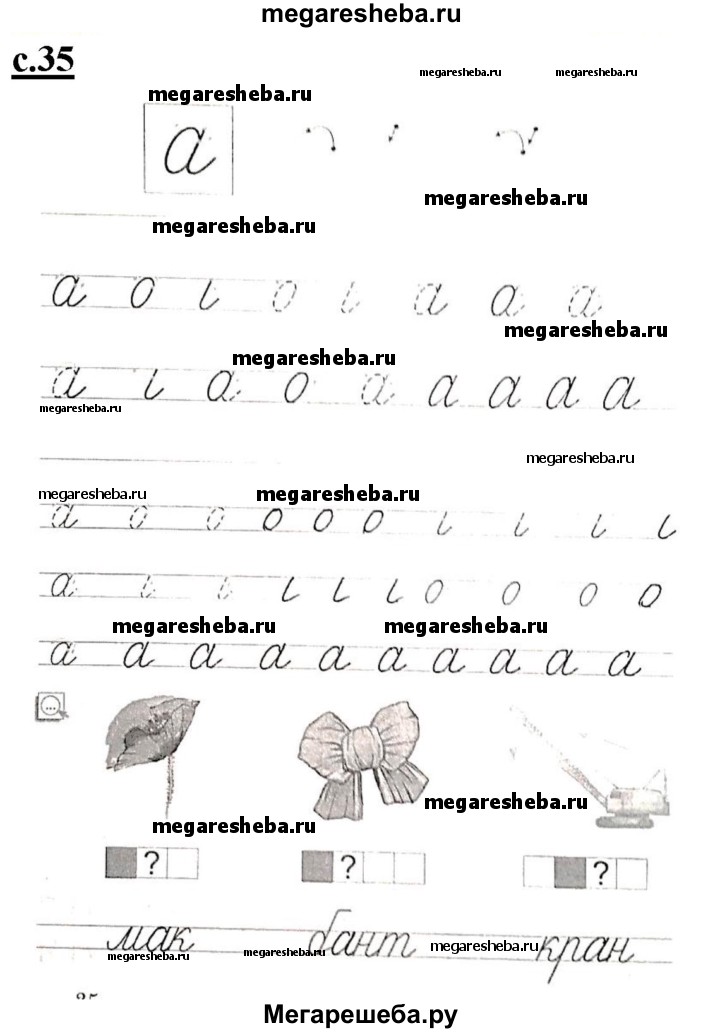 megaresheba.ru
с.35
megaresheba.ru megaresheba.ru
megaresheba.ru
а
megaresheba.ru
megaresheba.ru
а о ι о ι а а а
megaresheba.ru
megaresheba.ru
а ι а о а а а а а
megaresheba.ru
megaresheba.ru
megaresheba.ru megaresheba.ru
а о о о о о ι ι ι ι
а ι ι ι ι ι о о о о
megaresheba.ru megaresheba.ru
а а а а а а а а а а
...
megaresheba.ru
megaresheba.ru
? ? ?
мак бант кран
megaresheba.ru megaresheba.ru megaresheba.ru
Мегарешеба.ру